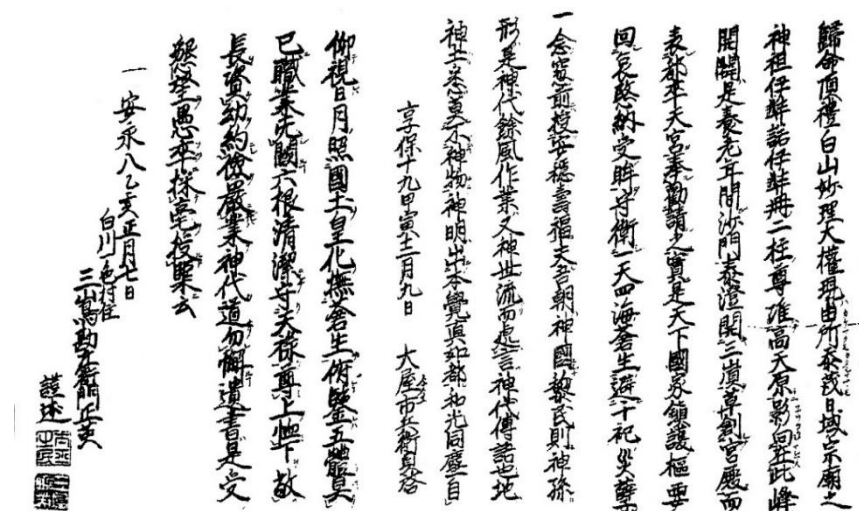 歸命頂禮白山妙理大權現由所忝茂日域宗廟之
神祖伊弉諾伊弉冊二柱尊准高天原影向在此峰
開闢是養老年間沙門泰澄開三嵿草創宮殿而
表都率天宮奉勸請之實是天下國家鎮護樞要
回哀愍納受眸守衛一天四海蒼生避千祀災
一念寂前授安穩壽福夫吾朝神國黎民則神孫
形是神代餘風作業又神世流而處言神代傳語也地
神土悉莫不神物神明出本覺真如都和光同塵自
享保十九甲寅十二月九日 大屋市兵衛
仰視日月照國土皇化撫蒼生俯鑒五體具
已職業先闕六根清潔守天祿尊上恤下故
長資幼約儉嚴業神代道勿懈遺書是受
懇望愚卒採毫投墨云
一安永八乙亥正月七日
白川 色村住
三嶌勘左衛門正英
謹述